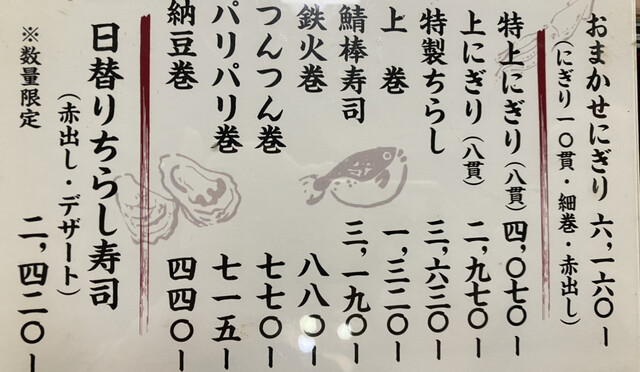 おまかせにぎり 六,一六〇ー
(にぎり一〇貫・細巻・赤出し)
特上にぎり(八貫) 四,〇七〇ー
上にぎり(八貫) 二,九七〇ー
特製ちらし 三,六三〇ー
上巻 一,三二〇ー
鯖棒寿司 三,一九〇ー
鉄火巻 八八〇ー
つんつん巻 七七〇ー
パリパリ巻 七一五ー
納豆巻 四四〇ー
日替りちらし寿司 二,四二〇ー
(赤出し・デザート)
※数量限定